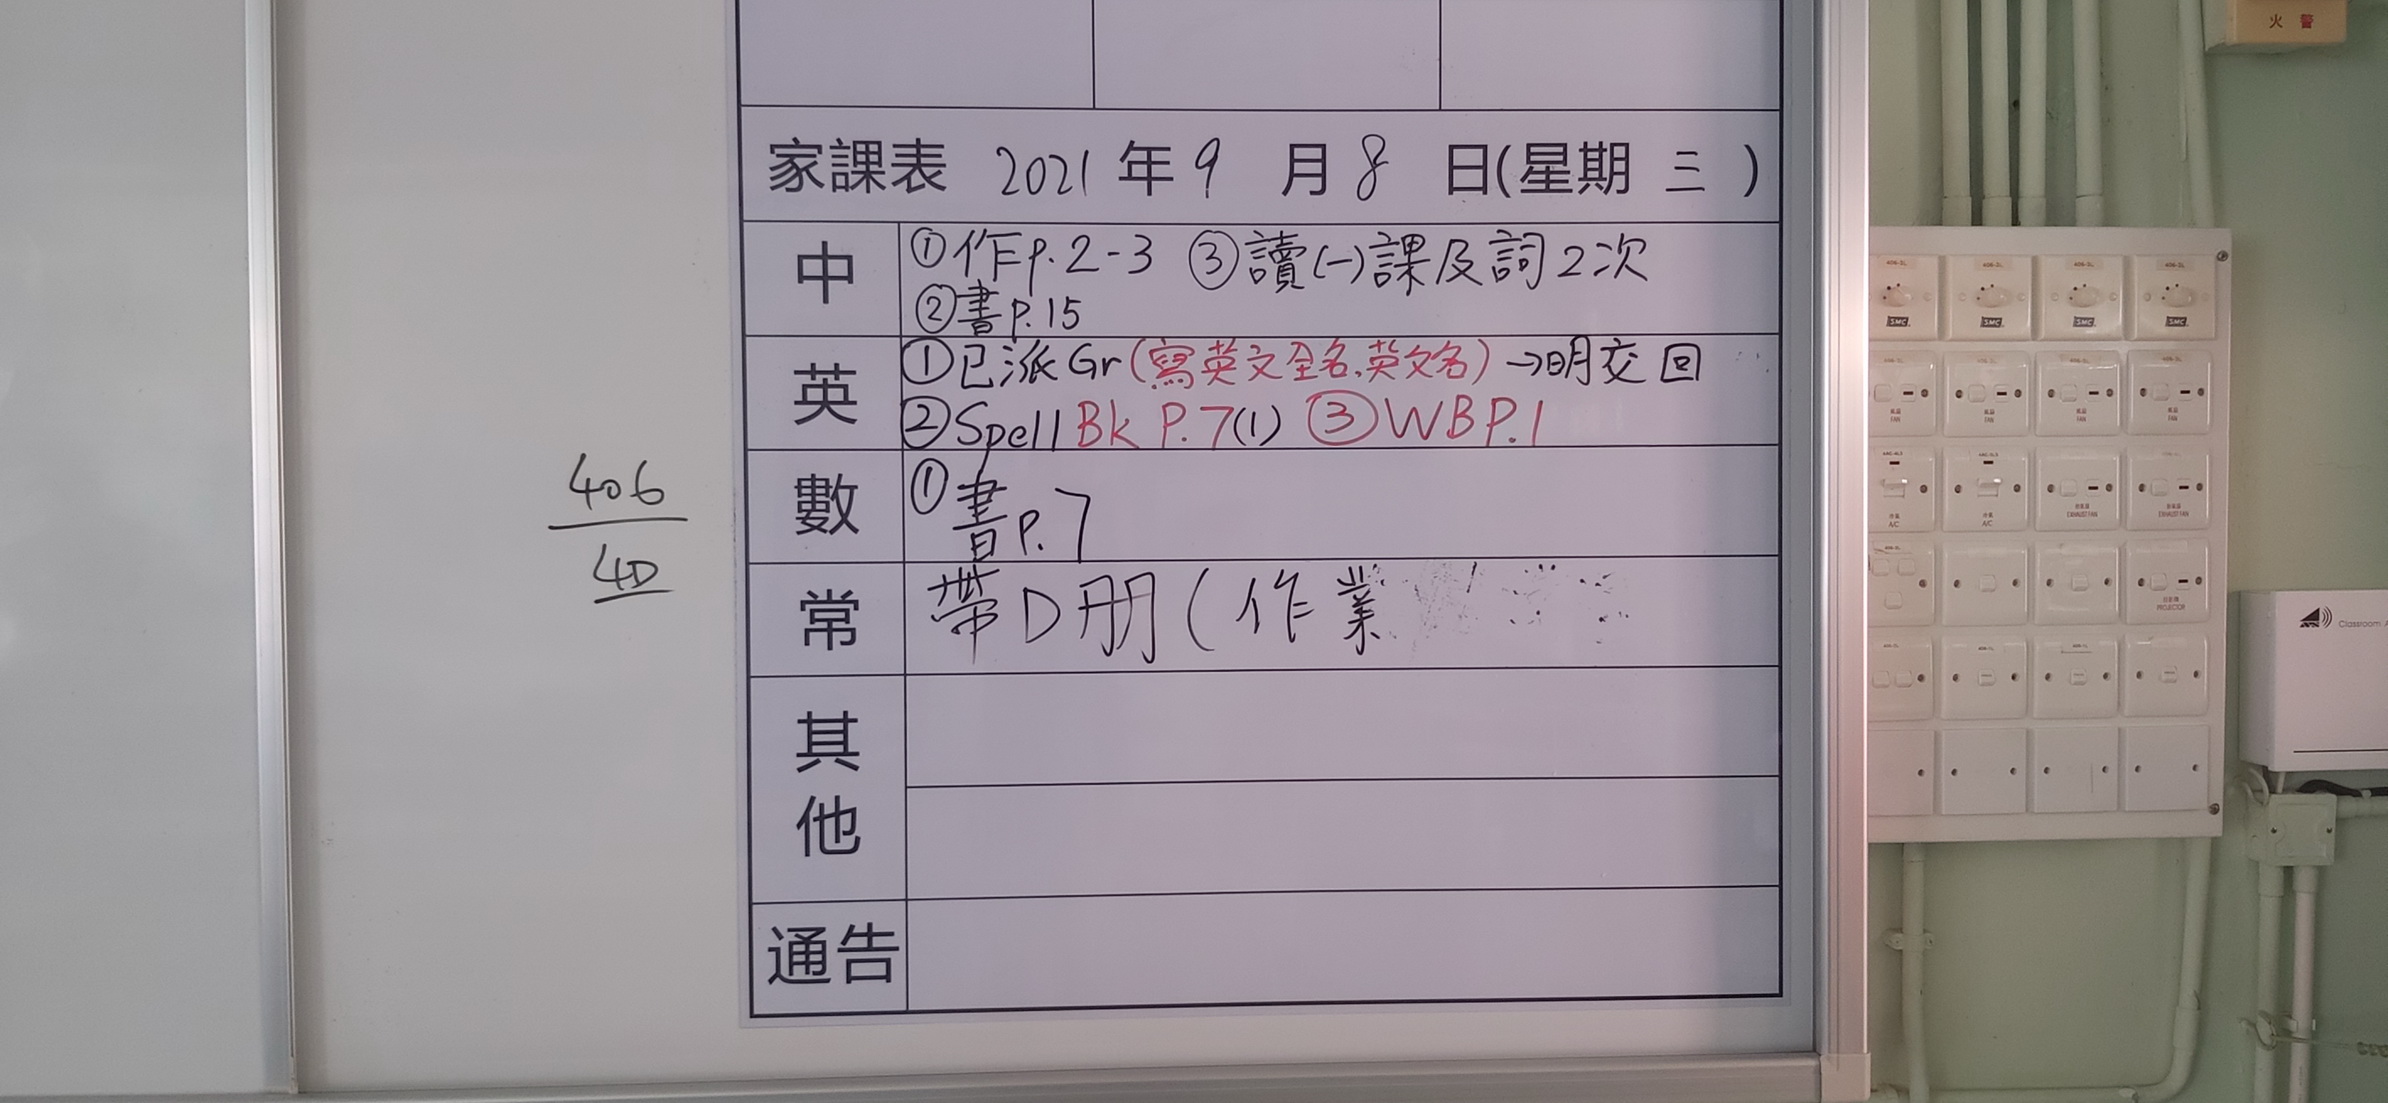 火 警
家課表 2021 年 9 月 8 日(星期 三 )
中
①作p.2-3 ③讀(一)課及詞2次
②書p.15
英
①已派Gr(寫英文全名,英文名)→明交回
②Spell Bk P.7(1) ③WB P.1
數
①書p.7
常
帶D冊(作業
其他
通告
406
4D
SMC
SMC
SMC
SMC
FAN
FAN
FAN
FAN
A/C
A/C
EXHAUST FAN
EXHAUST FAN
PROJECTOR
Classroom